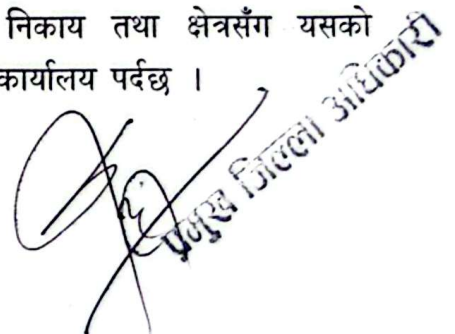 निकाय तथा क्षेत्रसँग यसको
कार्यालय पर्दछ ।
प्रमुख जिल्ला अधिकारी